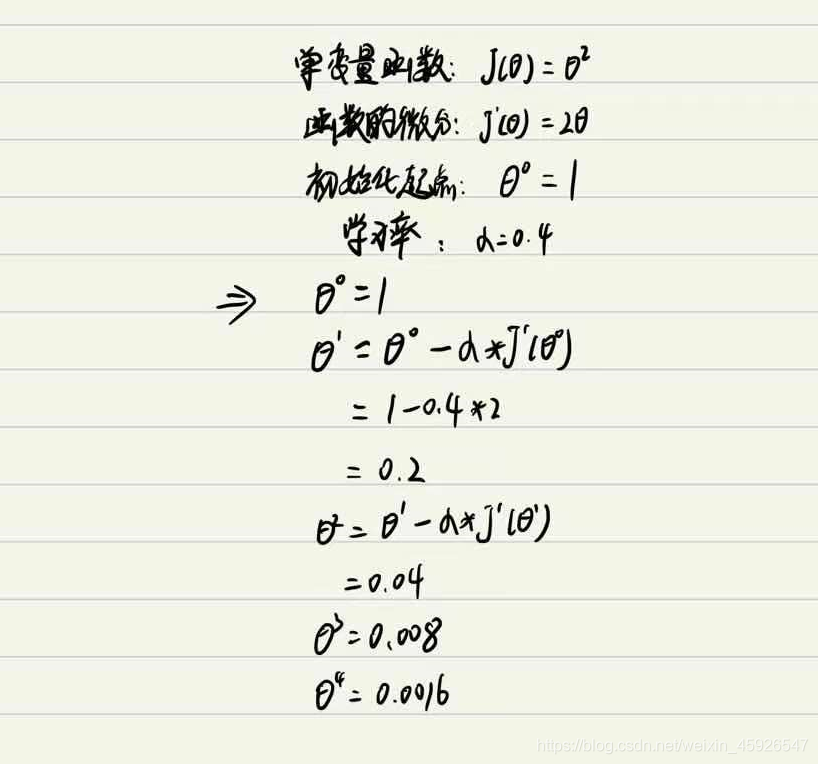 单变量函数: J(θ) = θ²
函数的微分: J'(θ) = 2θ
初始化起点: θ⁰ = 1
学习率 : α=0.4
⇒ θ⁰ = 1
θ¹ = θ⁰ - α*J'(θ⁰)
= 1-0.4*2
= 0.2
θ² = θ¹ - α*J'(θ¹)
= 0.04
θ³ = 0.008
θ⁴ = 0.0016
https://blog.csdn.net/weixin_45926547